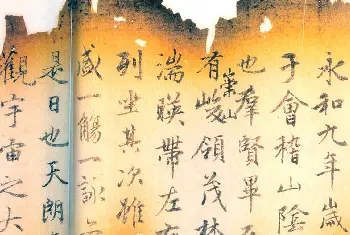 永和九年歲
于會稽山陰
也羣賢畢
有崇山峻領茂林
湍暎帶左右
列坐其次雖
盛一觴一詠
是日也天朗
觀宇宙之大